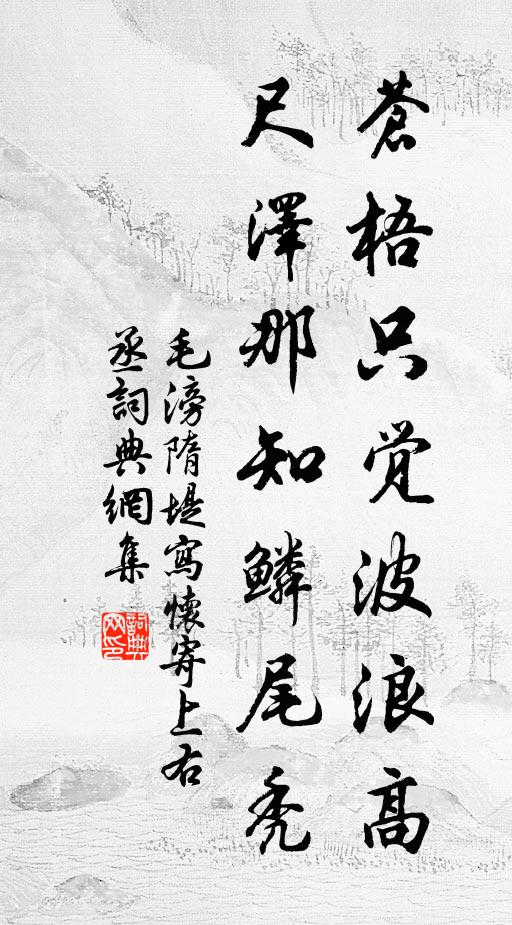 蒼梧只觉波浪高
尺澤那知鳞尾秃
毛滂隋堤寫懷寄上右
丞詞典網集
詞典网印